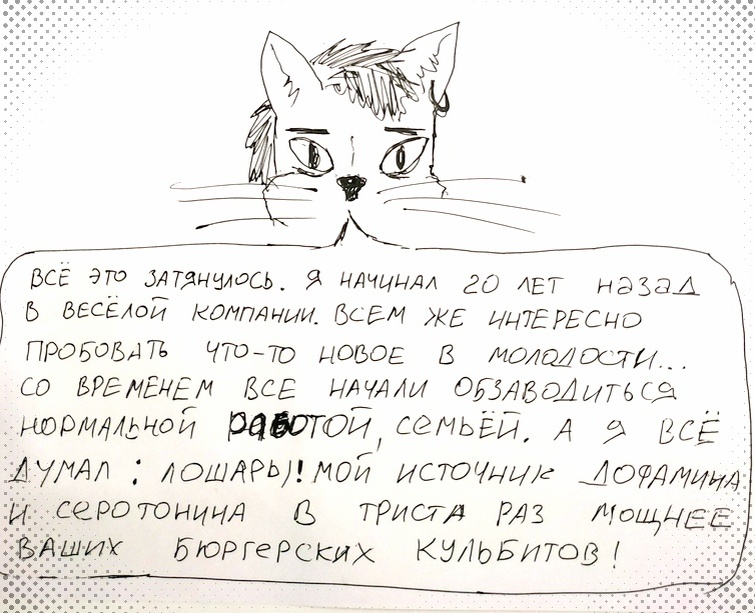 ВСЁ ЭТО ЗАТЯНУЛОСЬ. Я НАЧИНАЛ 20 ЛЕТ НАЗАД
В ВЕСЁЛОЙ КОМПАНИИ. ВСЕМ ЖЕ ИНТЕРЕСНО
ПРОБОВАТЬ ЧТО-ТО НОВОЕ В МОЛОДОСТИ...
СО ВРЕМЕНЕМ ВСЕ НАЧАЛИ ОБЗАВОДИТЬСЯ
НОРМАЛЬНОЙ РАБОТОЙ, СЕМЬЁЙ. А Я ВСЁ
ДУМАЛ: ЛОШАРЫ! МОЙ ИСТОЧНИК ДОФАМИНА
И СЕРОТОНИНА В ТРИСТА РАЗ МОЩНЕЕ
ВАШИХ БЮРГЕРСКИХ КУЛЬБИТОВ!